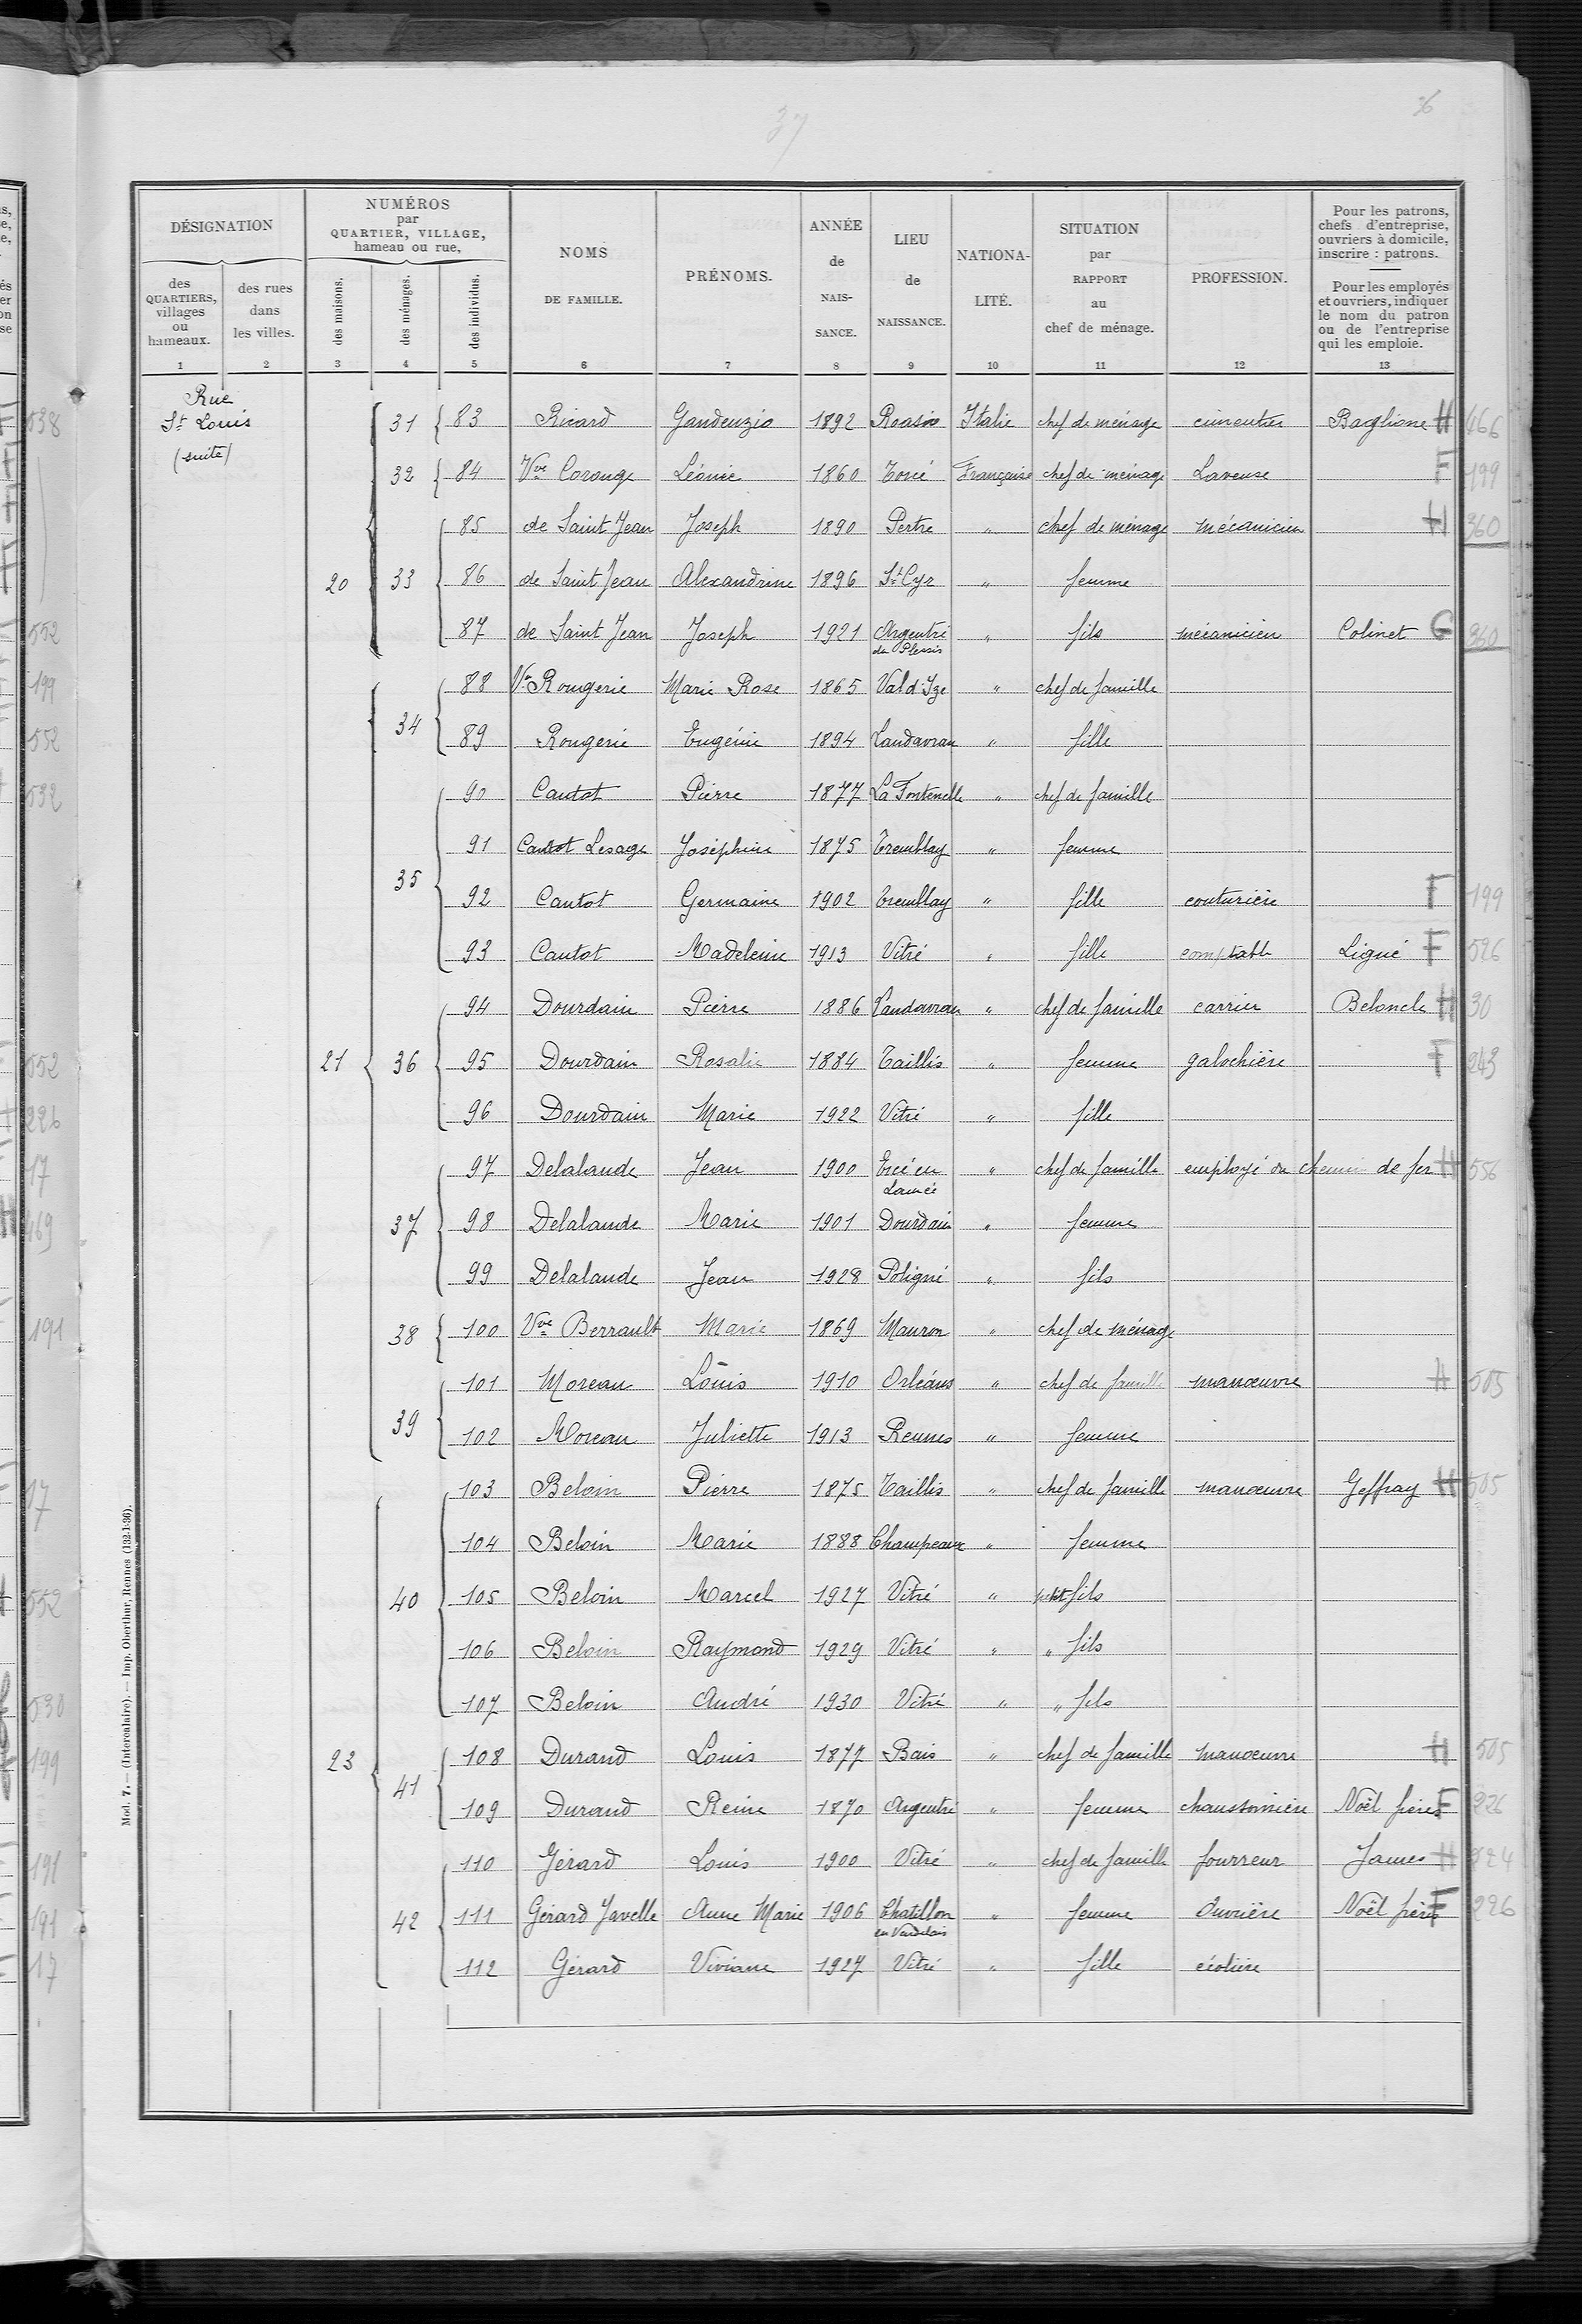 37
36
DÉSIGNATION
NUMÉROS
par
QUARTIER, VILLAGE,
hameau ou rue,
des QUARTIERS, villages ou hameaux.
des rues dans les villes.
des maisons.
des ménages.
des individus.
NOMS DE FAMILLE.
PRÉNOMS.
ANNÉE de NAIS-SANCE.
LIEU de NAISSANCE.
NATIONA-LITÉ.
SITUATION par RAPPORT au chef de ménage.
PROFESSION.
Pour les patrons, chefs d'entreprise, ouvriers à domicile, inscrire : patrons.
Pour les employés et ouvriers, indiquer le nom du patron ou de l'entreprise qui les emploie.
1 2 3 4 5 6 7 8 9 10 11 12 13
Rue
St Louis
(suite)
31 83 Ricard Gaudenzio 1892 Roasio Italie chef de ménage cimentier Baglione H 466
32 84 Vve Corouge Léonie 1860 Torcé Française chef de ménage Laveuse F 199
85 de Saint Jean Joseph 1890 Pertre " chef de ménage mécanicien H 360
20 33 86 de Saint Jean Alexandrine 1896 St Cyr " femme
87 de Saint Jean Joseph 1921 Argentré du Plessis " fils mécanicien Colinet G 360
88 Ve Rougerie Marie Rose 1865 Val d'Izé " chef de famille
34 89 Rougerie Eugénie 1894 Landavran " fille
90 Cautot Pierre 1877 La Fontenelle " chef de famille
91 Cautot Lesage Joséphine 1875 Tremblay " femme
35 92 Cautot Germaine 1902 Tremblay " fille couturière F 199
93 Cautot Madeleine 1913 Vitré " fille comptable Ligué F 526
94 Dourdain Pierre 1886 Landavran " chef de famille carrier Beloncle H 30
21 36 95 Dourdain Rosalie 1884 Taillis " femme galochière F 243
96 Dourdain Marie 1922 Vitré " fille
97 Delalande Jean 1900 Ercé en Lamée " chef de famille employé au chemin de fer H 556
37 98 Delalande Marie 1901 Dourdain " femme
99 Delalande Jean 1928 Poligné " fils
38 100 Vve Berrault Marie 1869 Mauron " chef de ménage
101 Moreau Louis 1910 Orléans " chef de famille manœuvre H 505
39 102 Moreau Juliette 1913 Rennes " femme
103 Beloin Pierre 1875 Taillis " chef de famille manœuvre Geffray H 505
104 Beloin Marie 1888 Champeaux " femme
40 105 Beloin Marcel 1927 Vitré " petit fils
106 Beloin Raymond 1929 Vitré " " fils
107 Beloin André 1930 Vitré " " fils
23 41 108 Durand Louis 1877 Bais " chef de famille manœuvre H 505
109 Durand Reine 1870 Argentré " femme chaussonnière Noël frères F 226
110 Gérard Louis 1900 Vitré " chef de famille fourreur James H 224
42 111 Gérard Javelle Anne Marie 1906 Chatillon en Vendelais " femme Ouvrière Noël frères F 226
112 Gérard Viviane 1927 Vitré " fille écolière
Mod. 7. — (Intercalaire). — Imp. Oberthur, Rennes (132-1-36).
538
552
199
552
532
552
226
17
469
191
17
552
530
199
191
191
17